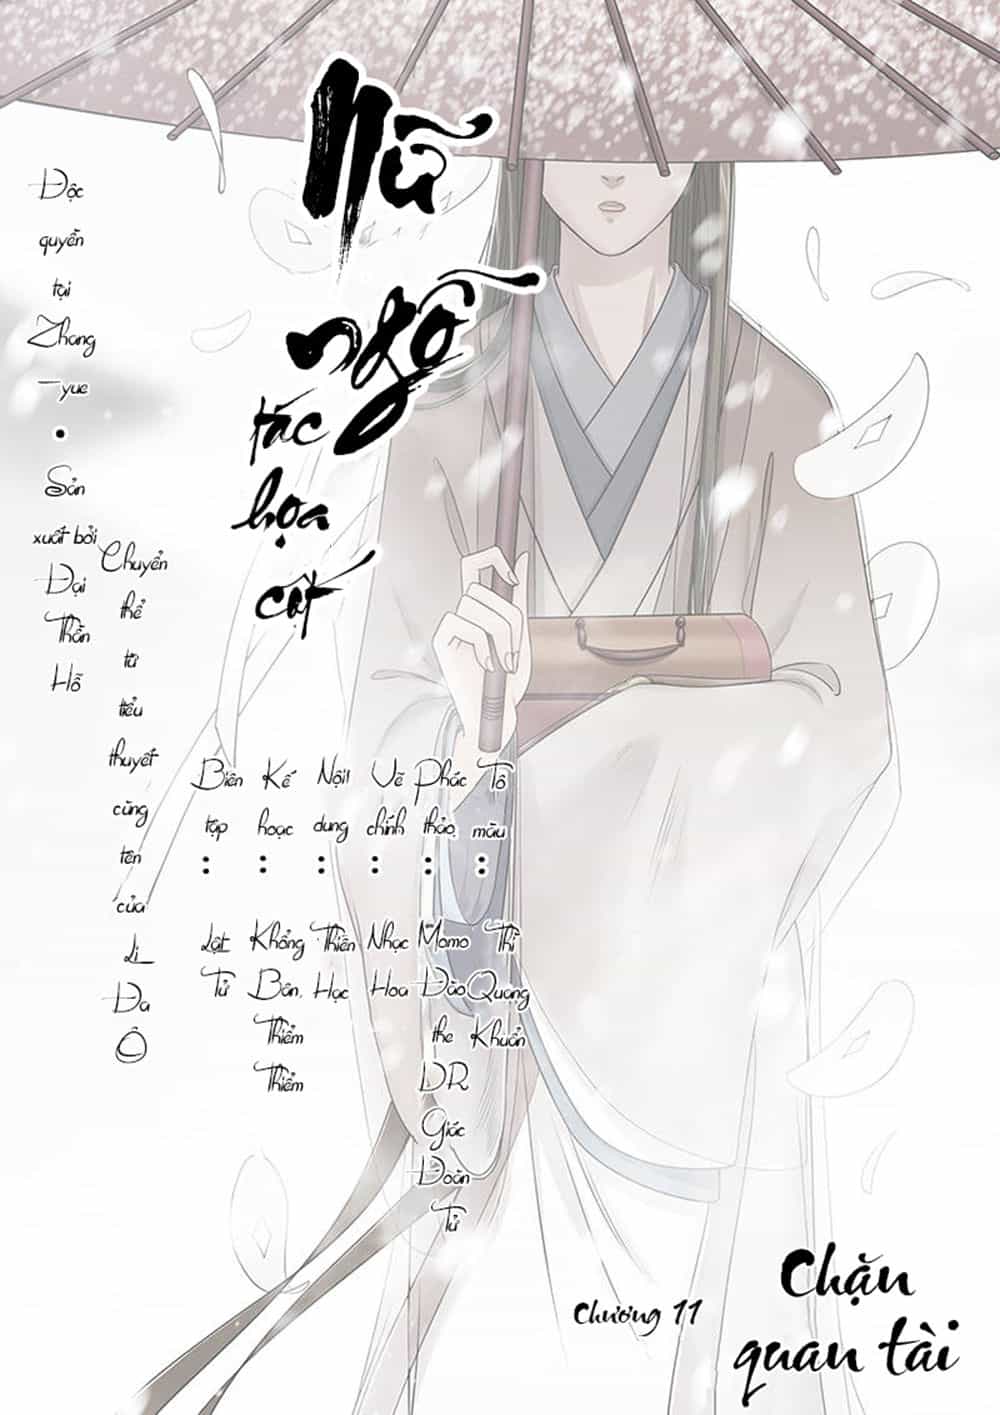 Nữ
ngỗ
tác
họa
cốt
Độc
quyền
tại
Zhang
—yue
•
Sản
xuất bởi
Đại
Thần
Hỗ
Chuyển
thể
từ
tiểu
thuyết
cùng
tên
của
Li
Đa
Ô
Biên
tập
:
Lật
Tử
Kế
hoạc
:
Khổng
Bân,
Thiểm
Thiểm
Nội!
dung
:
Thiền
Hạc
Vẽ
chính
:
Nhạc
Hoa
Phác
thảo
:
Momo
Đào
the
DR
Giác
Đoàn
Tử
Tô
màu
:
Thì
Quang
Khuẩn
Chương 11
Chặn
quan tài